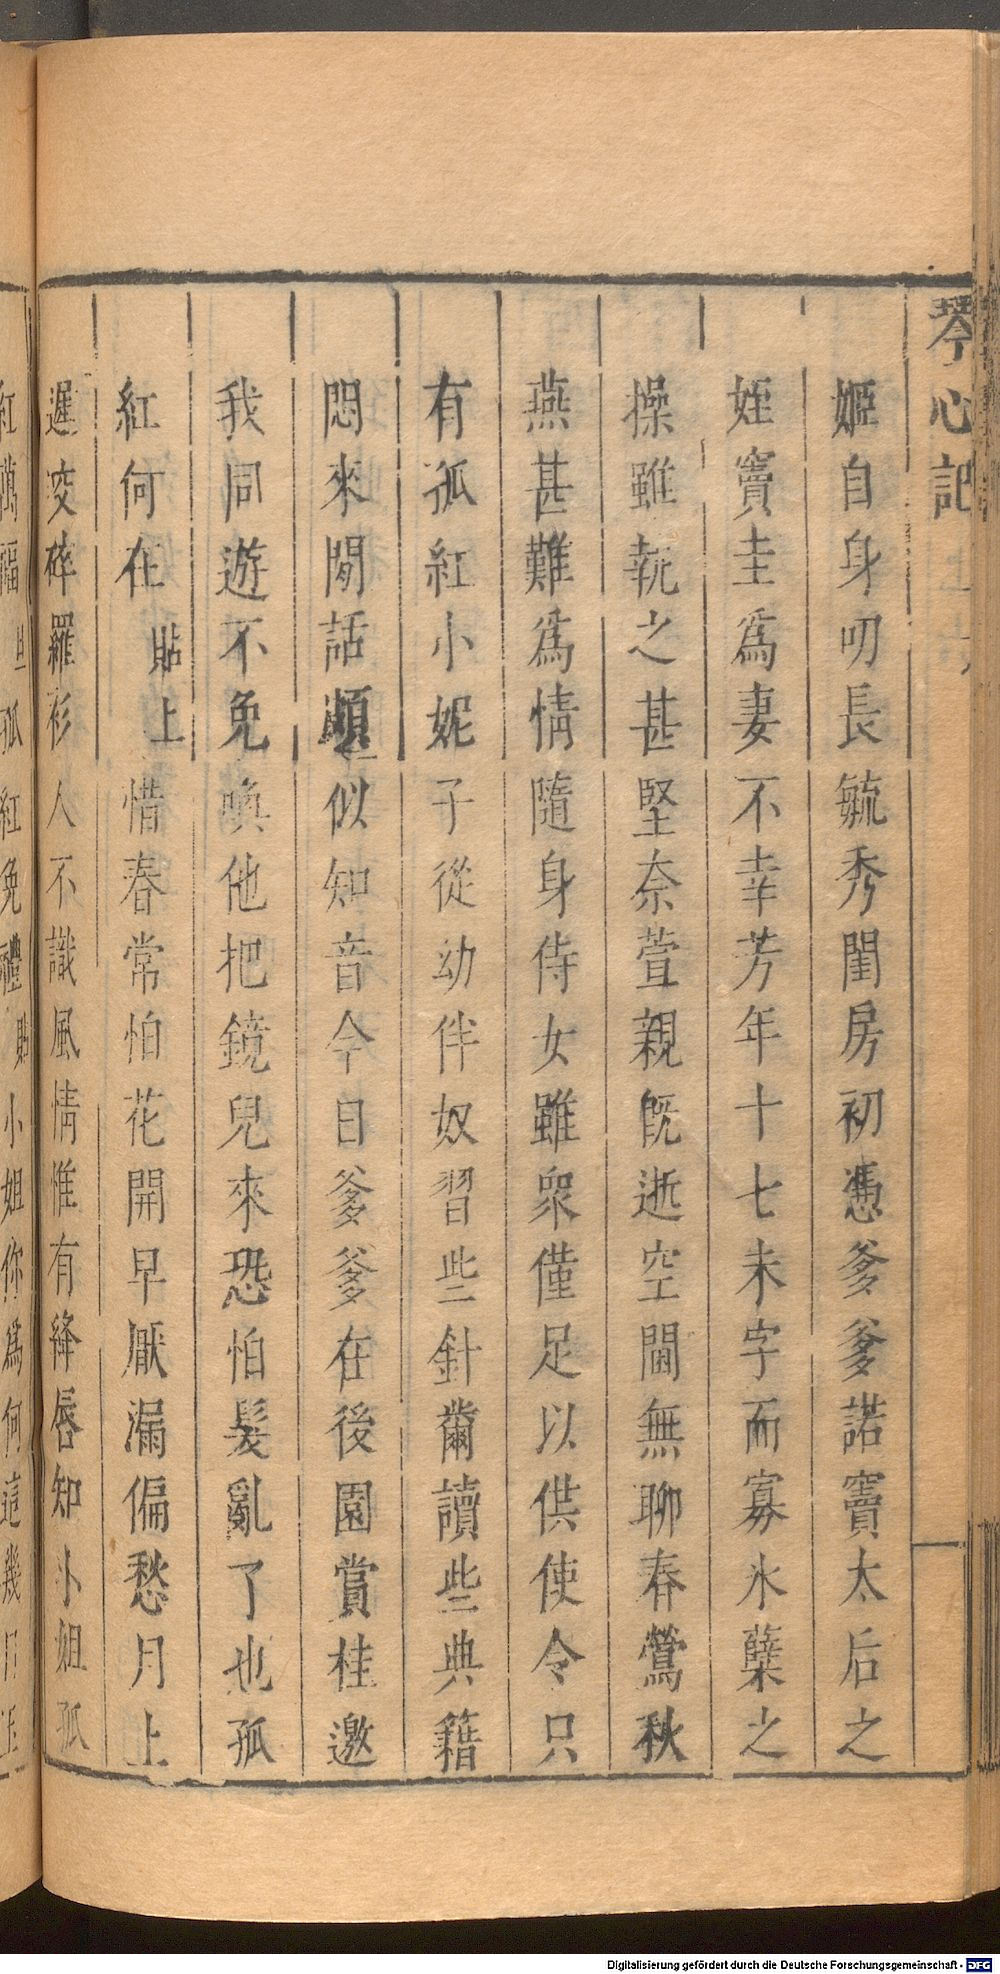 琴心記
姬自身叨長毓秀閨房初憑爹爹諾竇太后之
姪竇圭爲妻不幸芳年十七未字而寡氷蘖之
操雖執之甚堅奈萱親旣逝空閨無聊春鶯秋
燕甚難爲情隨身侍女雖衆僅足以供使令只
有孤紅小妮子從幼伴奴習些針黹讀些典籍
悶來閒話頗似知音今日爹爹在後園賞桂邀
我同遊不免喚他把鏡兒來恐怕髮亂了也孤
紅何在貼上惜春常怕花開早厭漏偏愁月上
遲淚碎羅衫人不識風情惟有絳唇知小姐孤
紅萬福旦孤紅免禮貼小姐你爲何這幾日玉
Digitalisierung gefördert durch die Deutsche Forschungsgemeinschaft - DFG